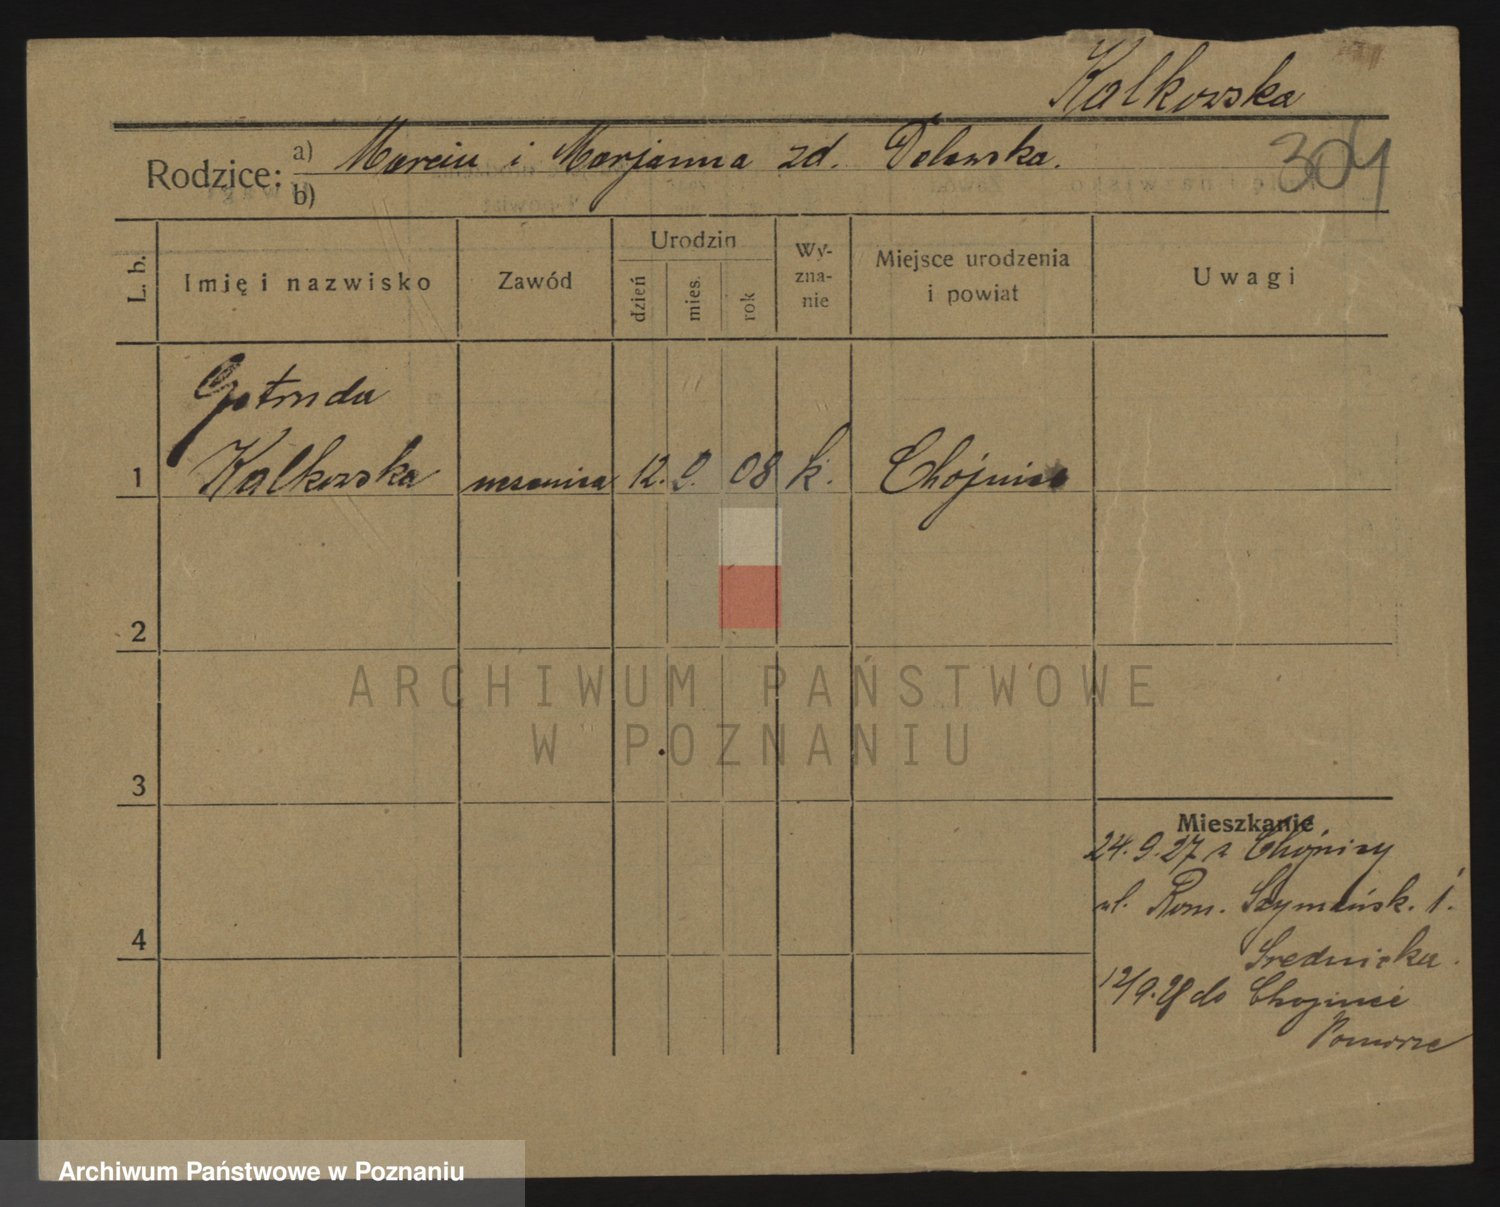 Kalkowska
Rodzice: a) Marcin i Marjanna zd. Dolewska.
b)
304
L. b.
Imię i nazwisko
Zawód
Urodzin
dzień
mies.
rok
Wy-
zna-
nie
Miejsce urodzenia
i powiat
Uwagi
Gertruda
1 Kalkowska uczenica 12. 9. 08 k. Chojnice
2
3
4
ARCHIWUM PAŃSTWOWE
W POZNANIU
Mieszkanie
24.9.27 z Chojnicy
ul. Rom. Szymańsk. 1.
Srednicka.
12/9.28 do Chojnice
Pomorze
Archiwum Państwowe w Poznaniu